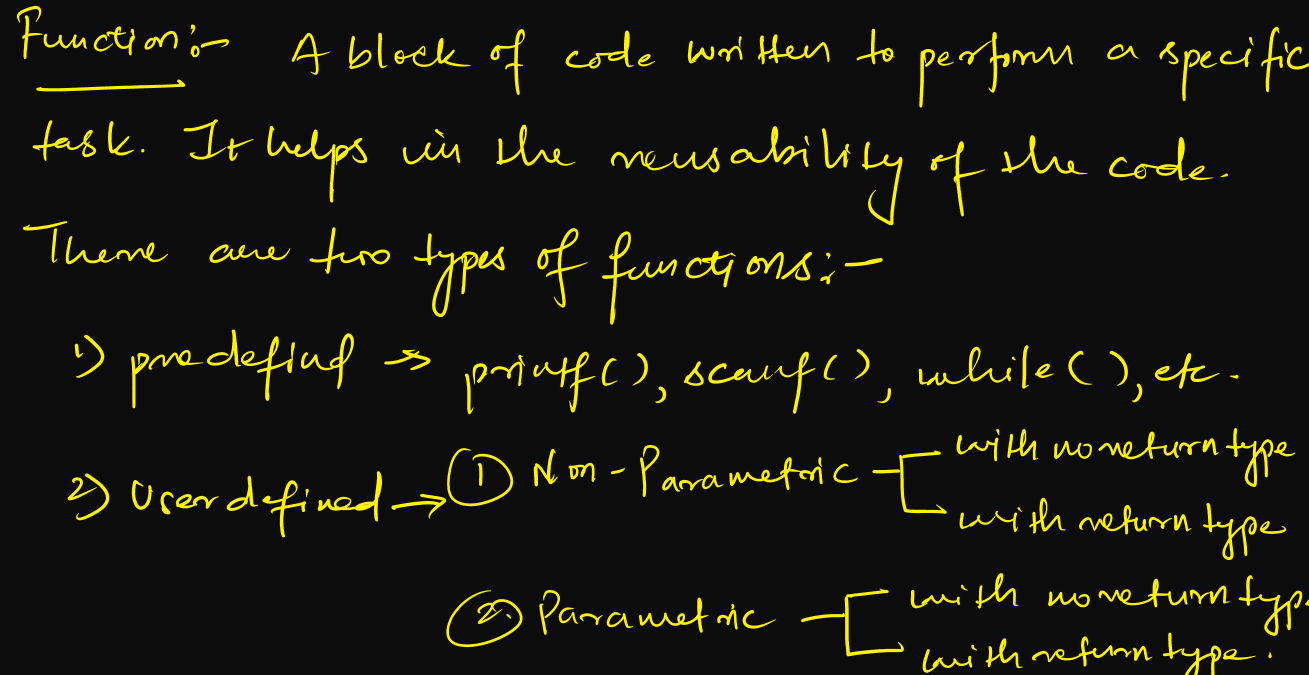 Function:-  A block of code written to perform a specific
task. It helps in the reusability of the code.
There are two types of functions:-
1) predefind → printf(), scanf(), while(), etc.
2) Userdefined → ① Non-Parametric - with no return type
with return type
② Parametric - with no return type
with return type.